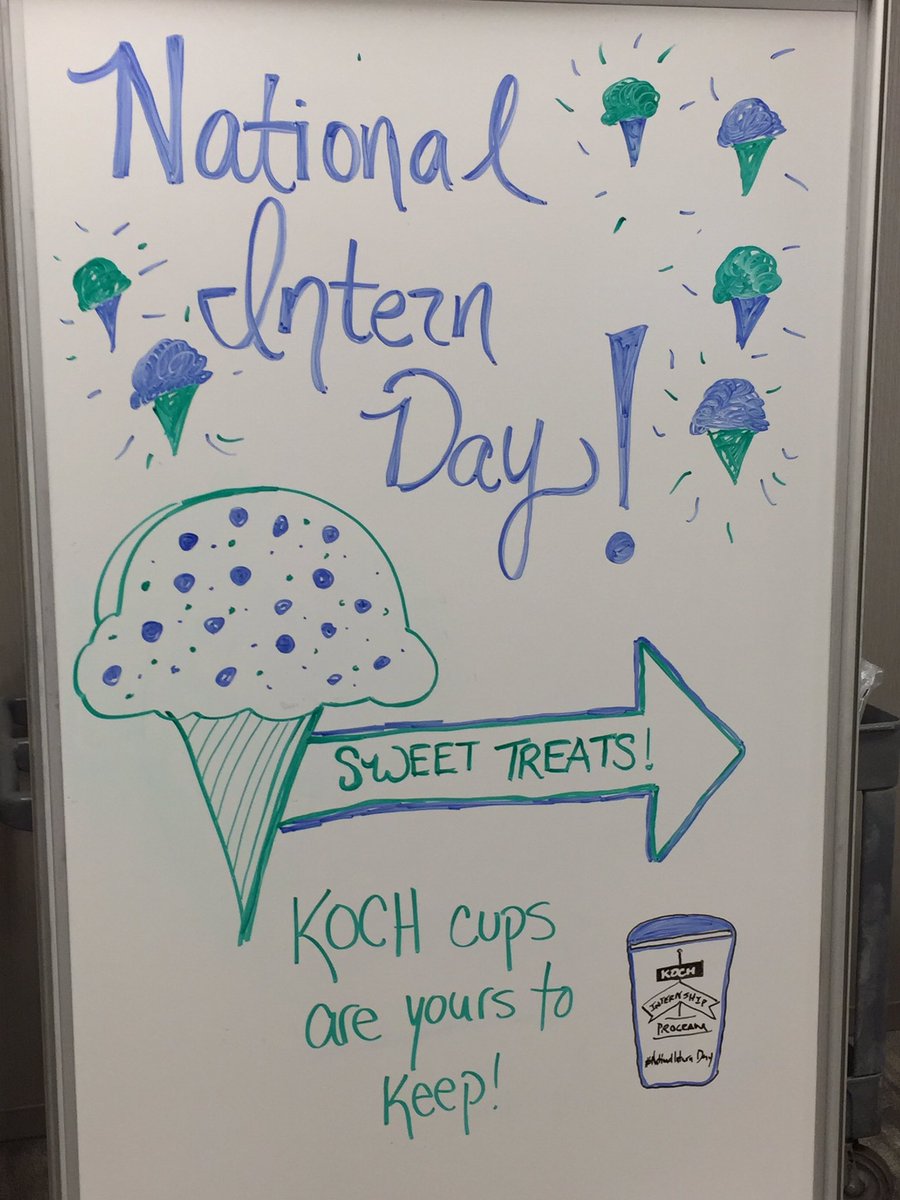 National
Intern
Day!
SWEET TREATS!
KOCH cups
are yours to
keep!
KOCH
INTERNSHIP
PROGRAM
Day